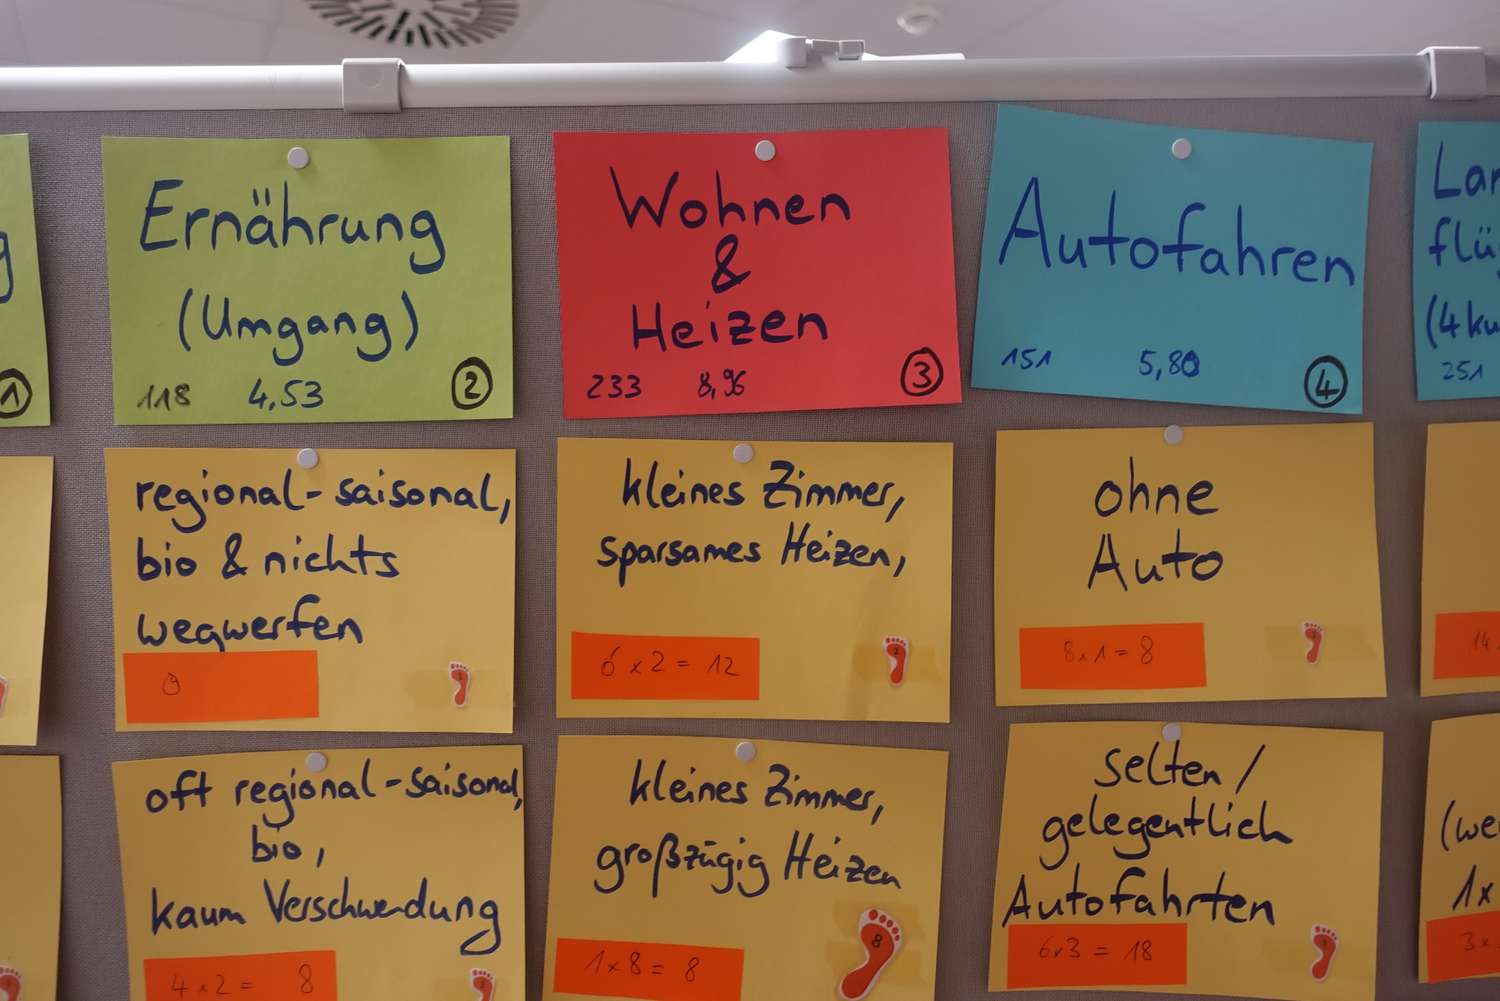 g
1
Ernährung
(Umgang)
118 4,53 2
Wohnen
&
Heizen
233 8,96 3
Autofahren
151 5,80 4
Lan
flü
(4 ku
251
regional-saisonal,
bio & nichts
wegwerfen
1
kleines Zimmer,
sparsames Heizen,
6 x 2 = 12 2
ohne
Auto
8 x 1 = 8 1
14
oft regional-saisonal,
bio,
kaum Verschwendung
4 x 2 = 8
kleines Zimmer,
großzügig Heizen
1 x 8 = 8 8
selten /
gelegentlich
Autofahrten
6 x 3 = 18 3
(we
1x
3 x